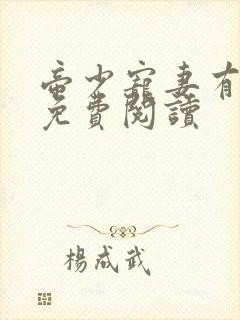 帝少寵妻有
免費閱讀
楊成武